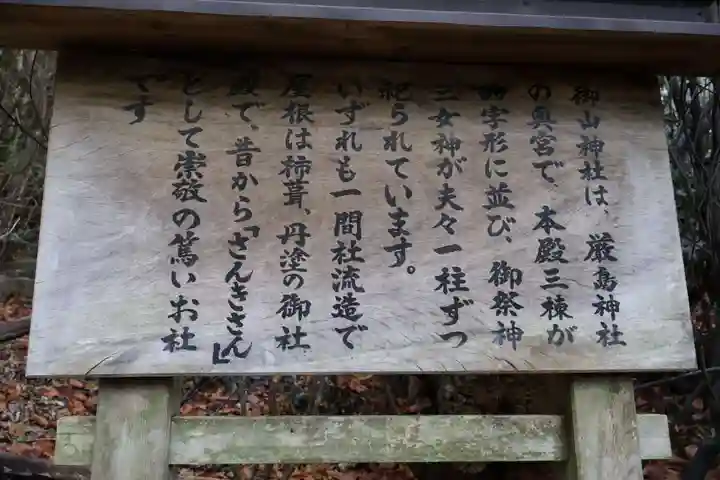 御山神社は、厳島神社
の奥宮で、本殿三棟が
字形に並び、御祭神
三女神が夫々一柱ずつ
祀られています。
いずれも一間社流造で
屋根は柿葺、丹塗の御社
殿で、昔から「さんきさん」
として崇敬の篤いお社
です